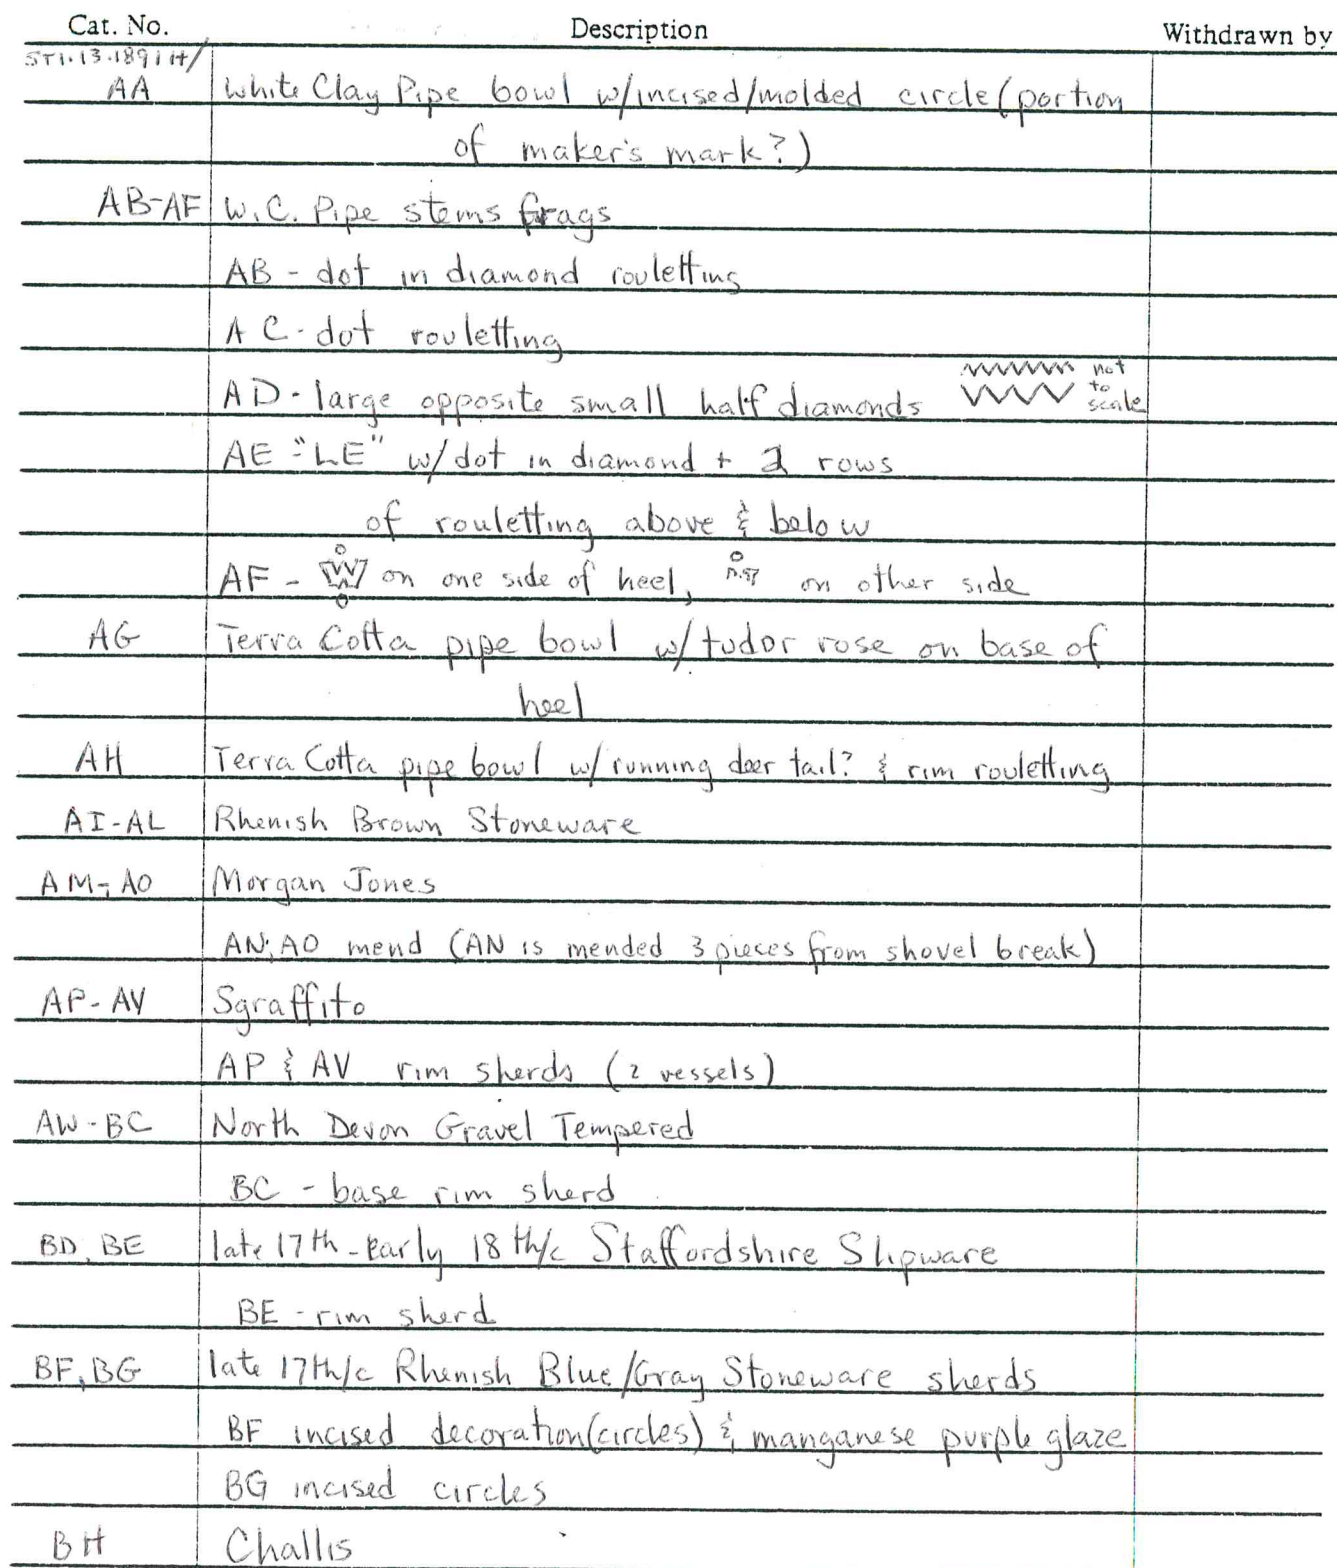 Cat. No. Description Withdrawn by
ST1.13.1891H/
AA White Clay Pipe bowl w/incised/molded circle (portion
of maker's mark?)
AB-AF W.C. Pipe stems frags
AB - dot in diamond rouletting
AC - dot rouletting
AD - large opposite small half diamonds not to scale
AE "LE" w/dot in diamond + 2 rows
of rouletting above & below
AF - W on one side of heel, on other side
AG Terra Cotta pipe bowl w/tudor rose on base of
heel
AH Terra Cotta pipe bowl w/running deer tail? & rim rouletting
AI-AL Rhenish Brown Stoneware
AM-AO Morgan Jones
AN, AO mend (AN is mended 3 pieces from shovel break)
AP-AV Sgraffito
AP & AV rim sherds (2 vessels)
AW-BC North Devon Gravel Tempered
BC - base rim sherd
BD, BE late 17th-Early 18th/c Staffordshire Slipware
BE - rim sherd
BF, BG late 17th/c Rhenish Blue/Gray Stoneware sherds
BF incised decoration (circles) & manganese purple glaze
BG incised circles
BH Challis